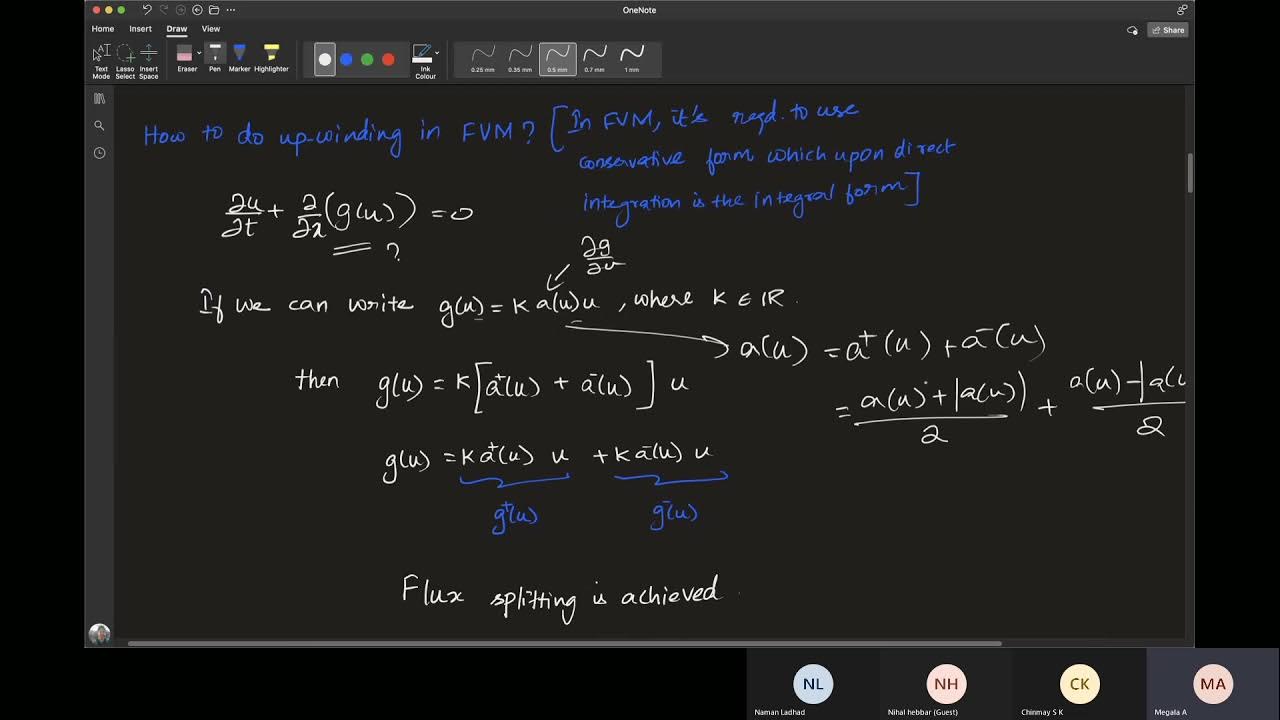 OneNote
Home Insert Draw View
Share
Text Mode
Lasso Select
Insert Space
Eraser
Pen
Marker
Highlighter
Ink Colour
0.25 mm
0.35 mm
0.5 mm
0.7 mm
1 mm
How to do up-winding in FVM? [In FVM, it's reqd. to use
conservative form which upon direct
integration is the integral form]
∂u/∂t + ∂/∂x (g(u)) = 0
?
∂g/∂u
If we can write g(u) = k a(u) u, where k ∈ ℝ.
a(u) = a⁺(u) + a⁻(u)
then g(u) = k[a⁺(u) + a⁻(u)] u
= a(u) + |a(u)|/2 + a(u) - |a(u/2
g(u) = k a⁺(u) u + k a⁻(u) u
g⁺(u) g⁻(u)
Flux splitting is achieved.
NL
NH
CK
MA
Naman Ladhad
Nihal hebbar (Guest)
Chinmay S K
Megala A